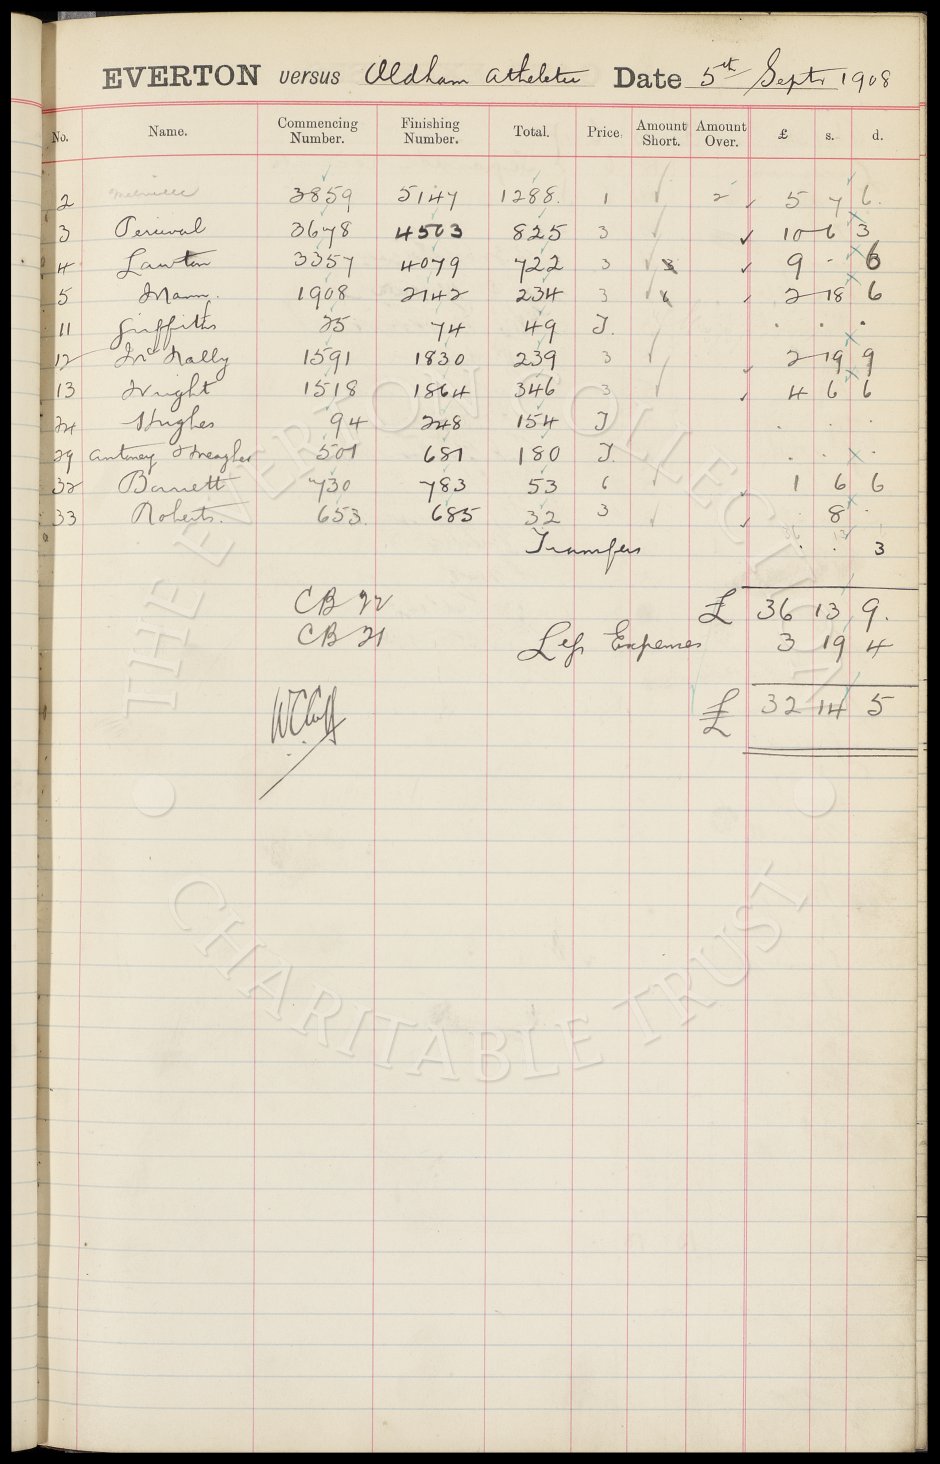 EVERTON versus Oldham Atheletic Date 5th Septr 1908
No. Name. Commencing Number. Finishing Number. Total. Price. Amount Short. Amount Over. £ s. d.
2 Melville 3859 5147 1288. 1 2 5 7 6.
3 Percival 3678 4503 825 3 10 6 3
4 Lawton 3357 4079 722 3 3 9 . 6
5 Mann. 1908 2142 234 3 6 2 18 6
11 Griffiths 25 74 49 J. . . .
12 McNally 1591 1830 239 3 2 19 9
13 Wright 1518 1864 346 3 4 6 6
24 Hughes 94 248 154 J . . .
29 Antoney Meagher 501 681 180 J. . . .
32 Barnett 730 783 53 6 1 6 6
33 Roberts. 653. 685 32 3 . 8 .
Transfers . . 3
CB 22 £ 36 13 9.
CB 21 Less Expenses 3 19 4
£ 32 14 5
THE EVERTON COLLECTION
CHARITABLE TRUST